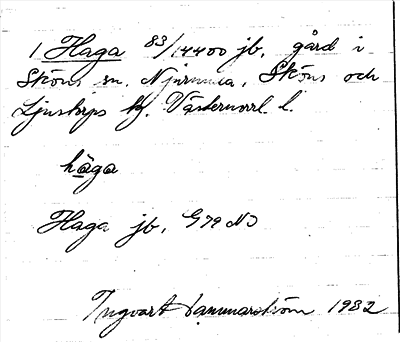 1 Haga 83/14400 jb, gård i
Sköns sn. Njurunda, Sköns och
Ljustorps tg. Västernorrl. l.
håga
Haga jb, G79 NJ
Ingvart Hammarström 1982